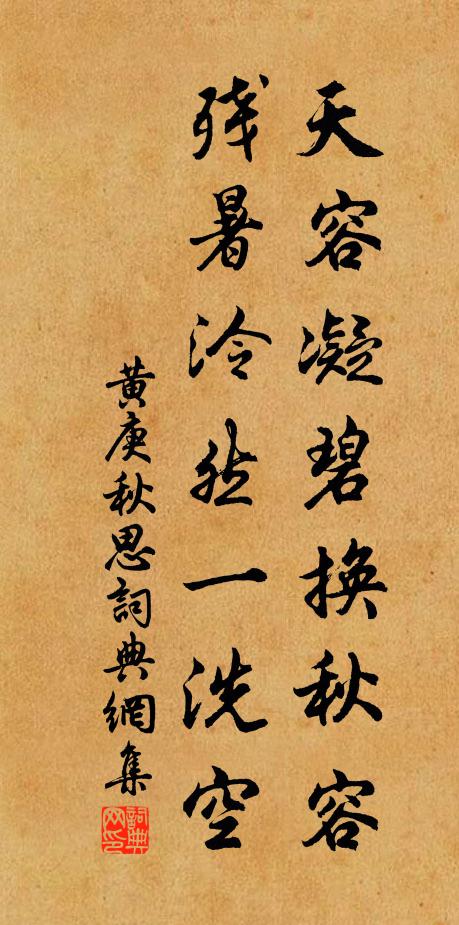 天容凝碧換秋容
残暑泠然一洗空
黄庚秋思詞典網集
詞典网印